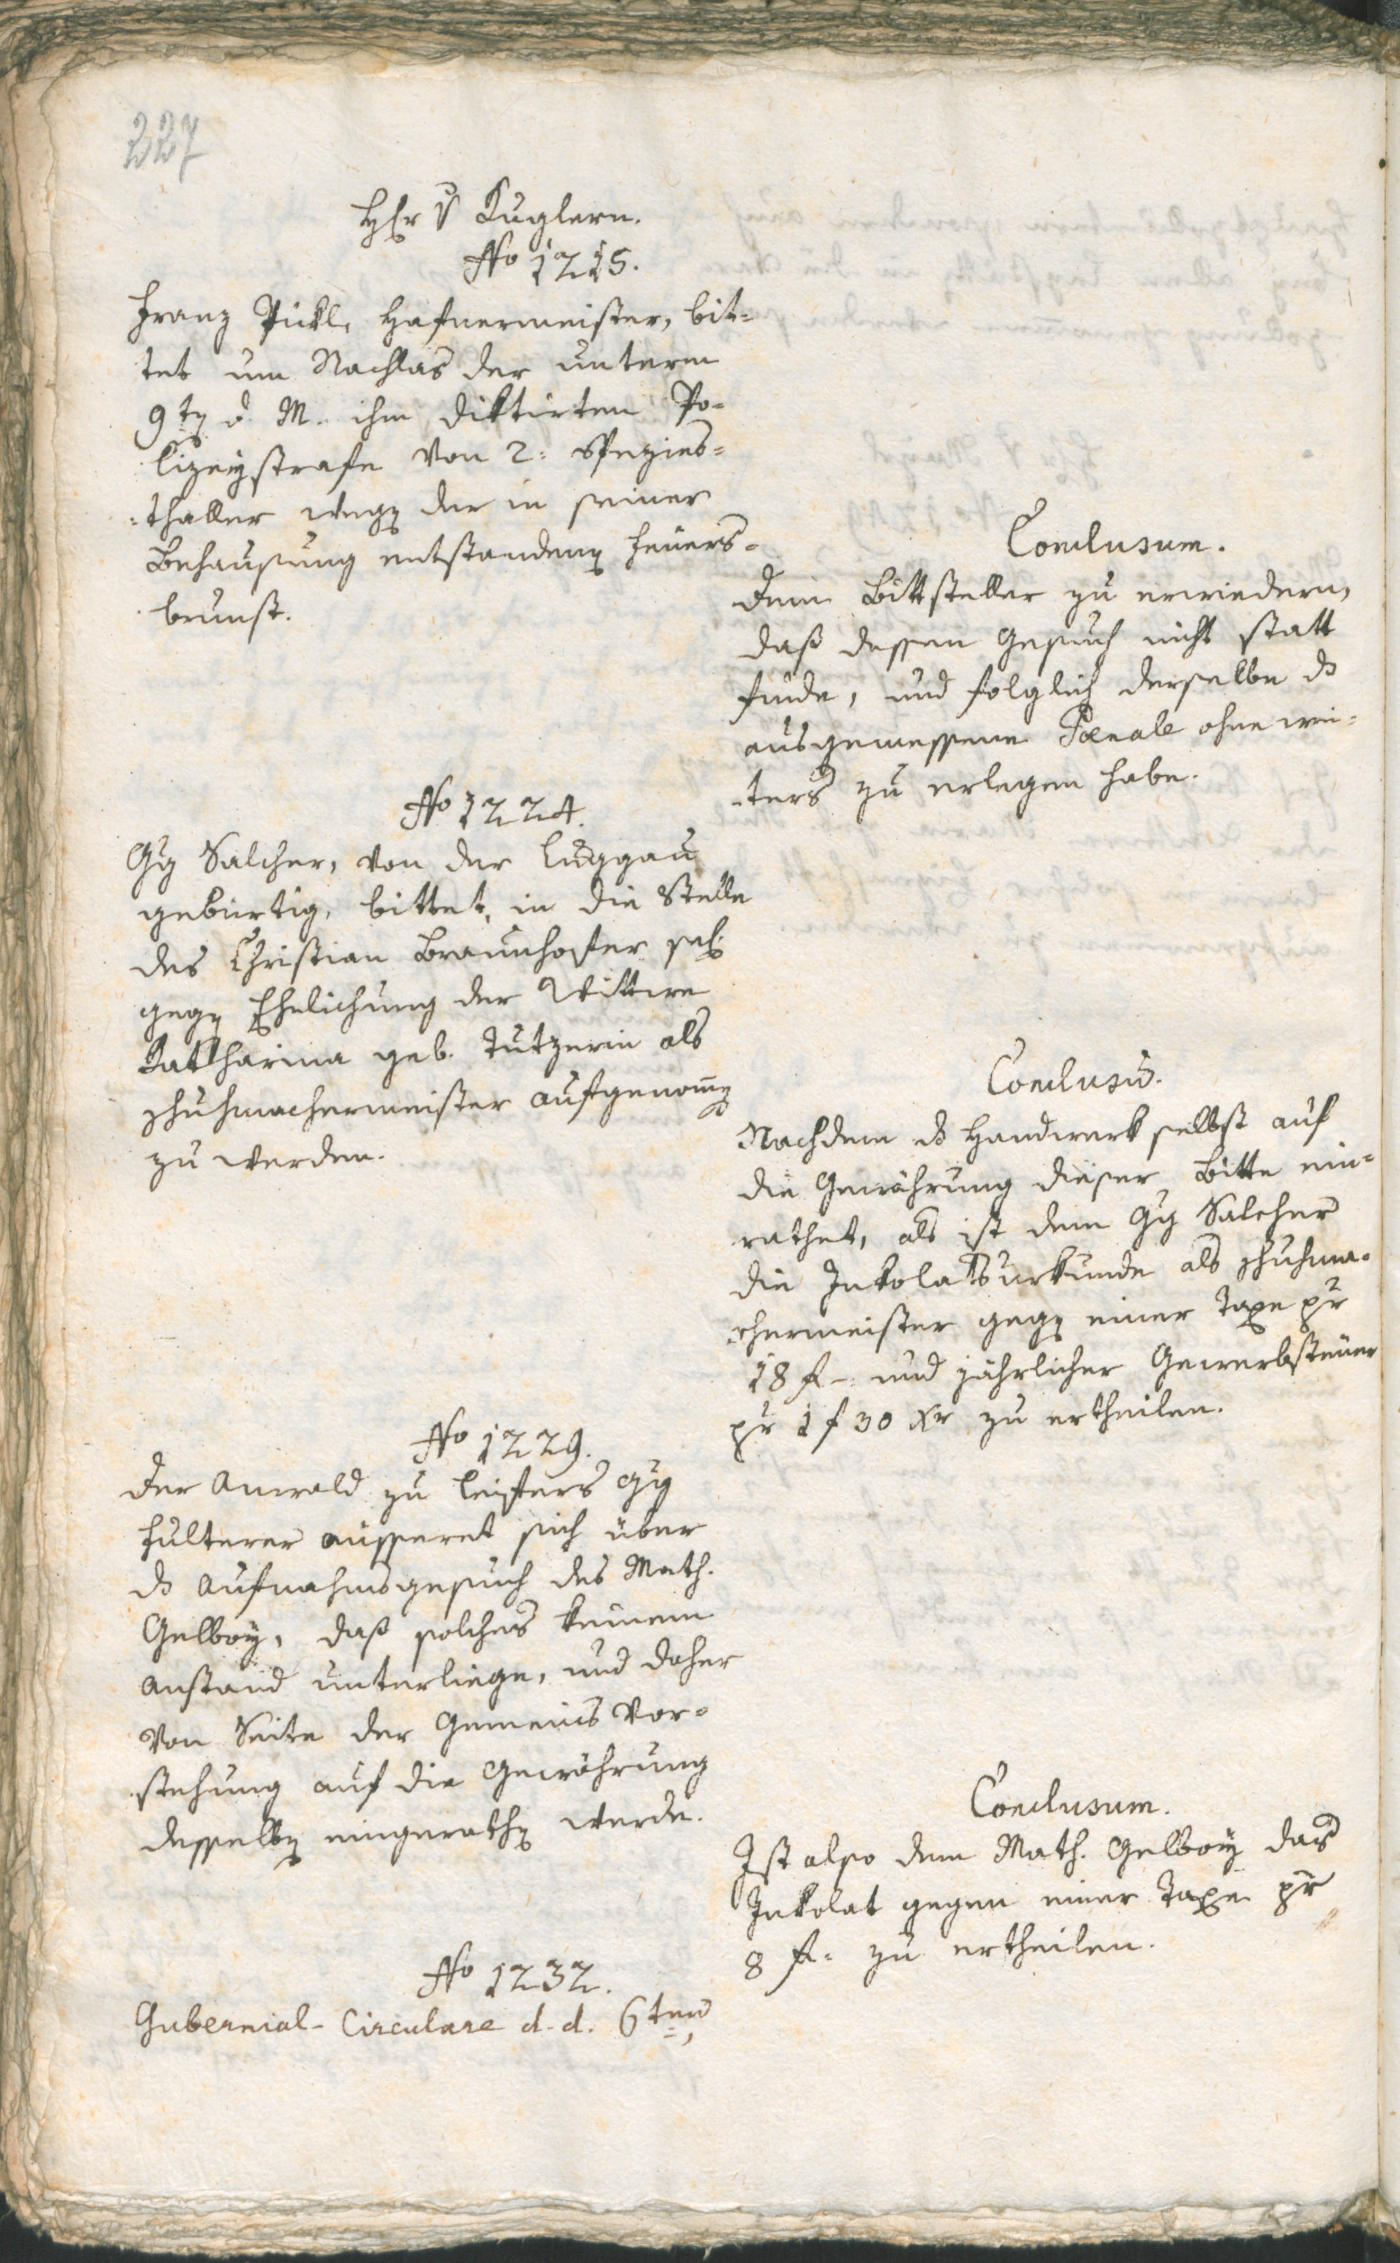 227
H£r v Kuglern.
No 1215.
Franz Pickl, Hafnermeister, bit-
tet um Nachlas der unterm
9t d. M. ihm diktirten Po-
lizeystrafe von 2: Spezies-
-thaller weg der in seiner
Behausung entstanden Feuers-
brunst.
Conclusum.
Dem Bittsteller zu erwiedern,
daß dessen Gesuch nicht statt
finde, und folglich derselbe ds
ausgemessene Pœnale ohne wei-
-ters zu erlegen habe.
No 1224.
Gg Salcher, von der Luggau
gebürtig, bittet, in die Stelle
des Christian Braunhofer sel:
geg Ehelichung der Wittwe
Katharina geb. Tutzerin als
Schuhmachermeister aufgenom̄
zu werden.
Conclusū.
Nachdem ds Handwerk selbst auf
die Gewährung dieser Bitte ein-
rathet, als ist dem Gg Salcher
die Inkolatsurkunde als Schuhma-
-chermeister geg einer Taxe pr
18 f - und jährlicher Gewerbsteuer
pr 1 f 30 xr zu ertheilen.
No 1229.
Der Anwald zu Leifers Gg
Fulterer äusseret sich über
ds Aufnahmsgesuch des Math.
Gelboy, daß solches keinem
Anstand unterliege, und daher
von Seite der Gemeins Vor-
stehung auf die Gewährung
desselb eingerath werde.
Conclusum.
Ist also dem Math. Gelboy das
Inkolat gegen einer Taxe pr
8 f - zu ertheilen.
No 1232.
Gubernial-Circulare d. d. 6ten,